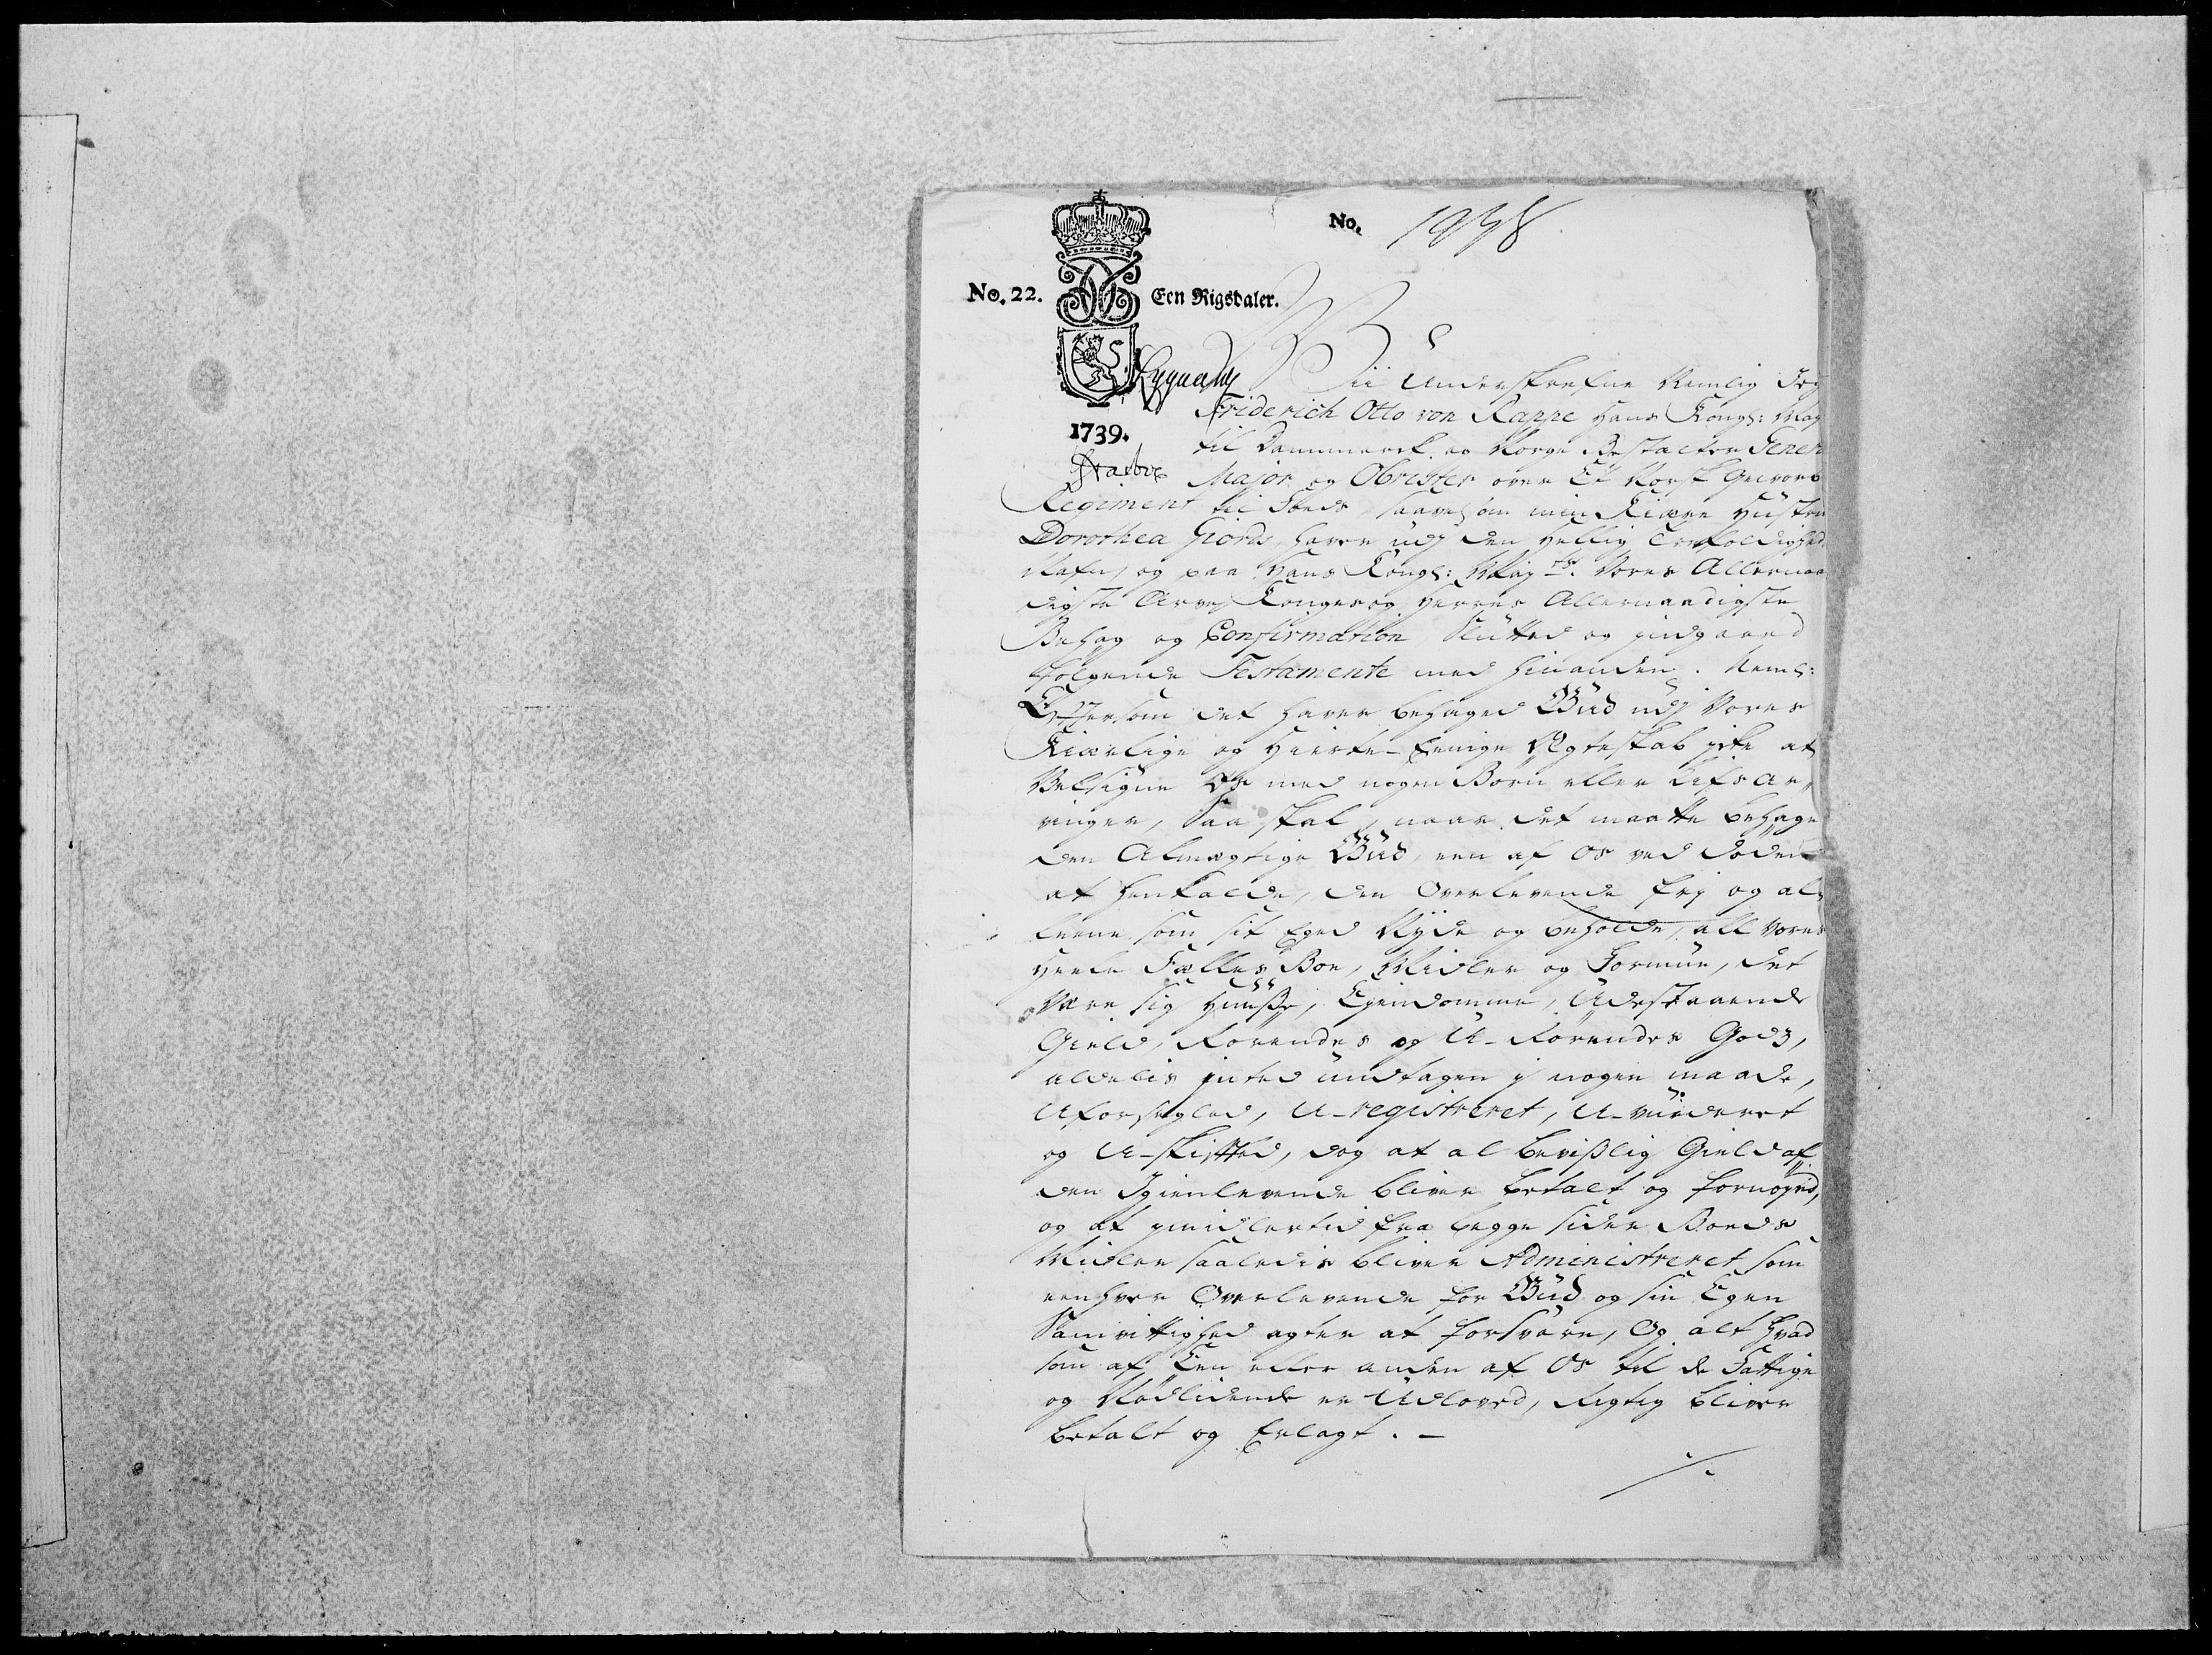 No. 1938
No. 22. Een Rigsdaler.
1739.
Vii Underskrefne Nemlig Jeg
Friderich Otto von Rappe Hans Kongl: May
til Dannemark og Norge Bestalter Gener
Major og Obrister over Et Norsk Gevorb
Regiment til Foeds, saavelsom min Kiære Hustru
Dorothea Giords, haver udj den Hellig Trefoldighed
Nafn, og paa Hans Kongl: Mayts. Vores Allernaa
digste Arve Konges og Herres Allernaadigste
Behag og Confirmation Slutted og indgaaed
følgende Testamente med hinanden. Neml:
Eftersom det haver behaged Gud udj Vores
Kiærlige og Hierte-Eenige Ægteskab icke at
Velsigne Os med nogen Børn eller Lifs Ar,
vinger, Saa skal, naar det maatte behage
den Almægtige Gud, een af Os ved døden
at henkalde, den Overlevende frj og al,
leene som sit Eged Nyde og beholde, all vores
Heele Fælles Boe, Midler og Formue, det
Være sig Huuse, Eiendomme, Udestaaende
Gield, Rørendes og U-Rørendes Gods,
aldelis inted undtagen i nogen maade,
Uforseglet, U-registreret, U-vurderet
og U-skifted, dog at al bevislig Gield af
den Igienlevende bliver betalt og fornøyed,
og at imidlertid fra begge sider Boeds
Midler saaledis bliver Administreret som
eenhver Overlevende for Gud og sin Egen
Samvittighed agter at forsvare, Og alt hvad
som af Een eller anden af Os til de Fattige
og Nødlidende er Udloved, Rigtig bliver
betalt og Erlagt. –